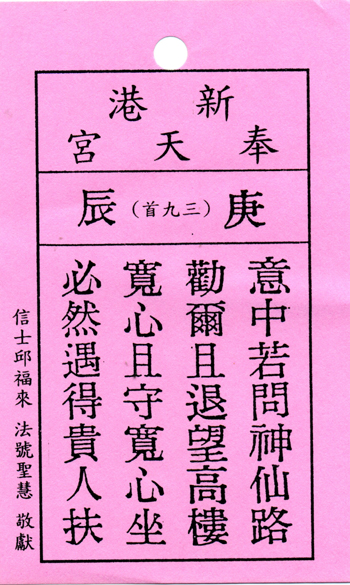 新港
奉天宮
庚（三九首）辰
意中若問神仙路
勸爾且退望高樓
寬心且守寬心坐
必然遇得貴人扶
信士邱福來 法號聖慧 敬獻